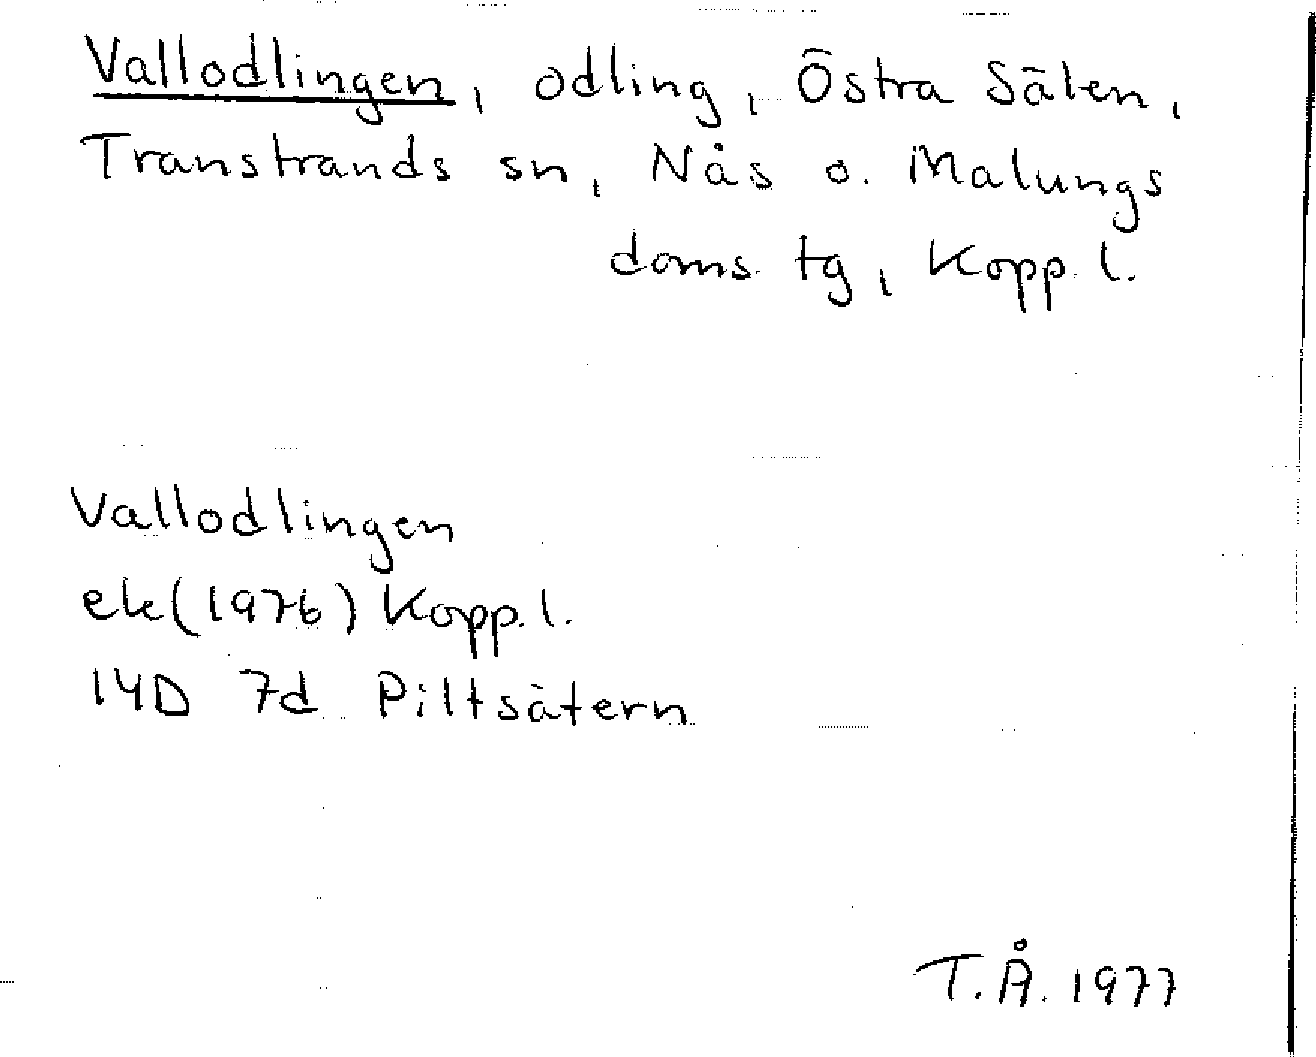 Vallodlingen, odling, Östra Sälen,
Transtrands sn, Nås o. Malungs
doms. tg, Kopp. l.
Vallodlingen
ek (1976) Kopp. l.
14D 7d Piltsätern
T.Å. 1977